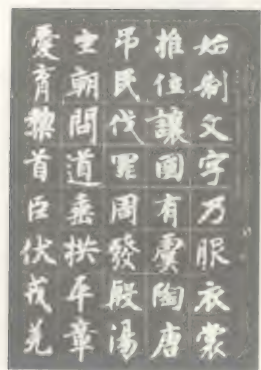 始制文字乃服衣裳
推位讓國有虞陶唐
吊民伐罪周發殷湯
坐朝問道垂拱平章
愛育黎首臣伏戎羌